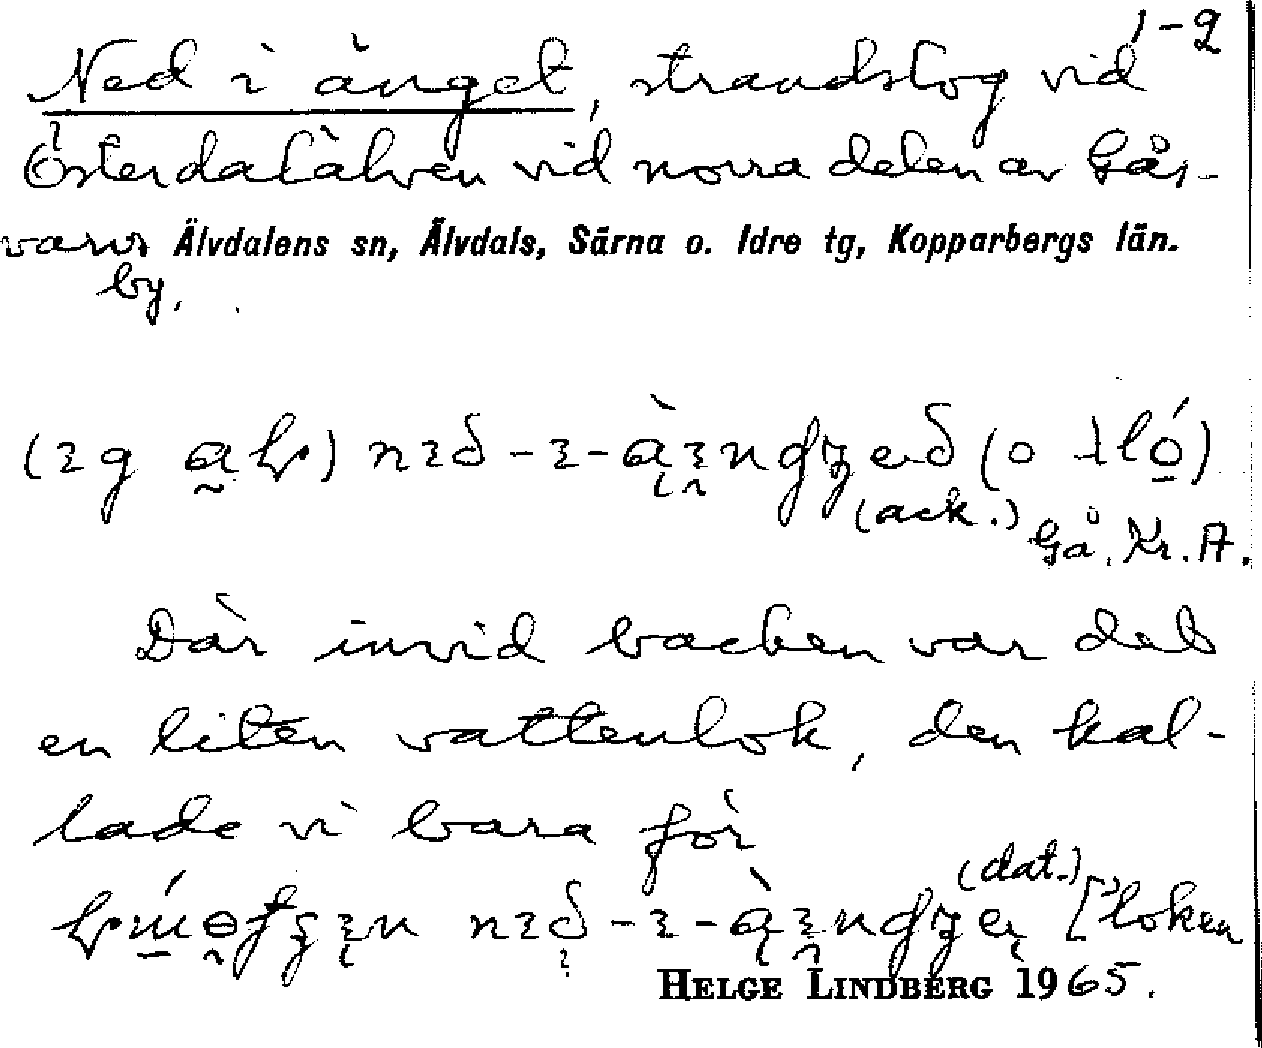 1-2
Ned i änget, strandskog vid
Österdalälven vid norra delen av Gås-
varvs Älvdalens sn, Älvdals, Särna o. Idre tg, Kopparbergs län.
by.
(ack.)
Gå. Kr. A.
Där invid backen var det
en liten vattenlok, den kal-
lade vi bara för
(dat.)
[“loken
HELGE LINDBERG 1965.